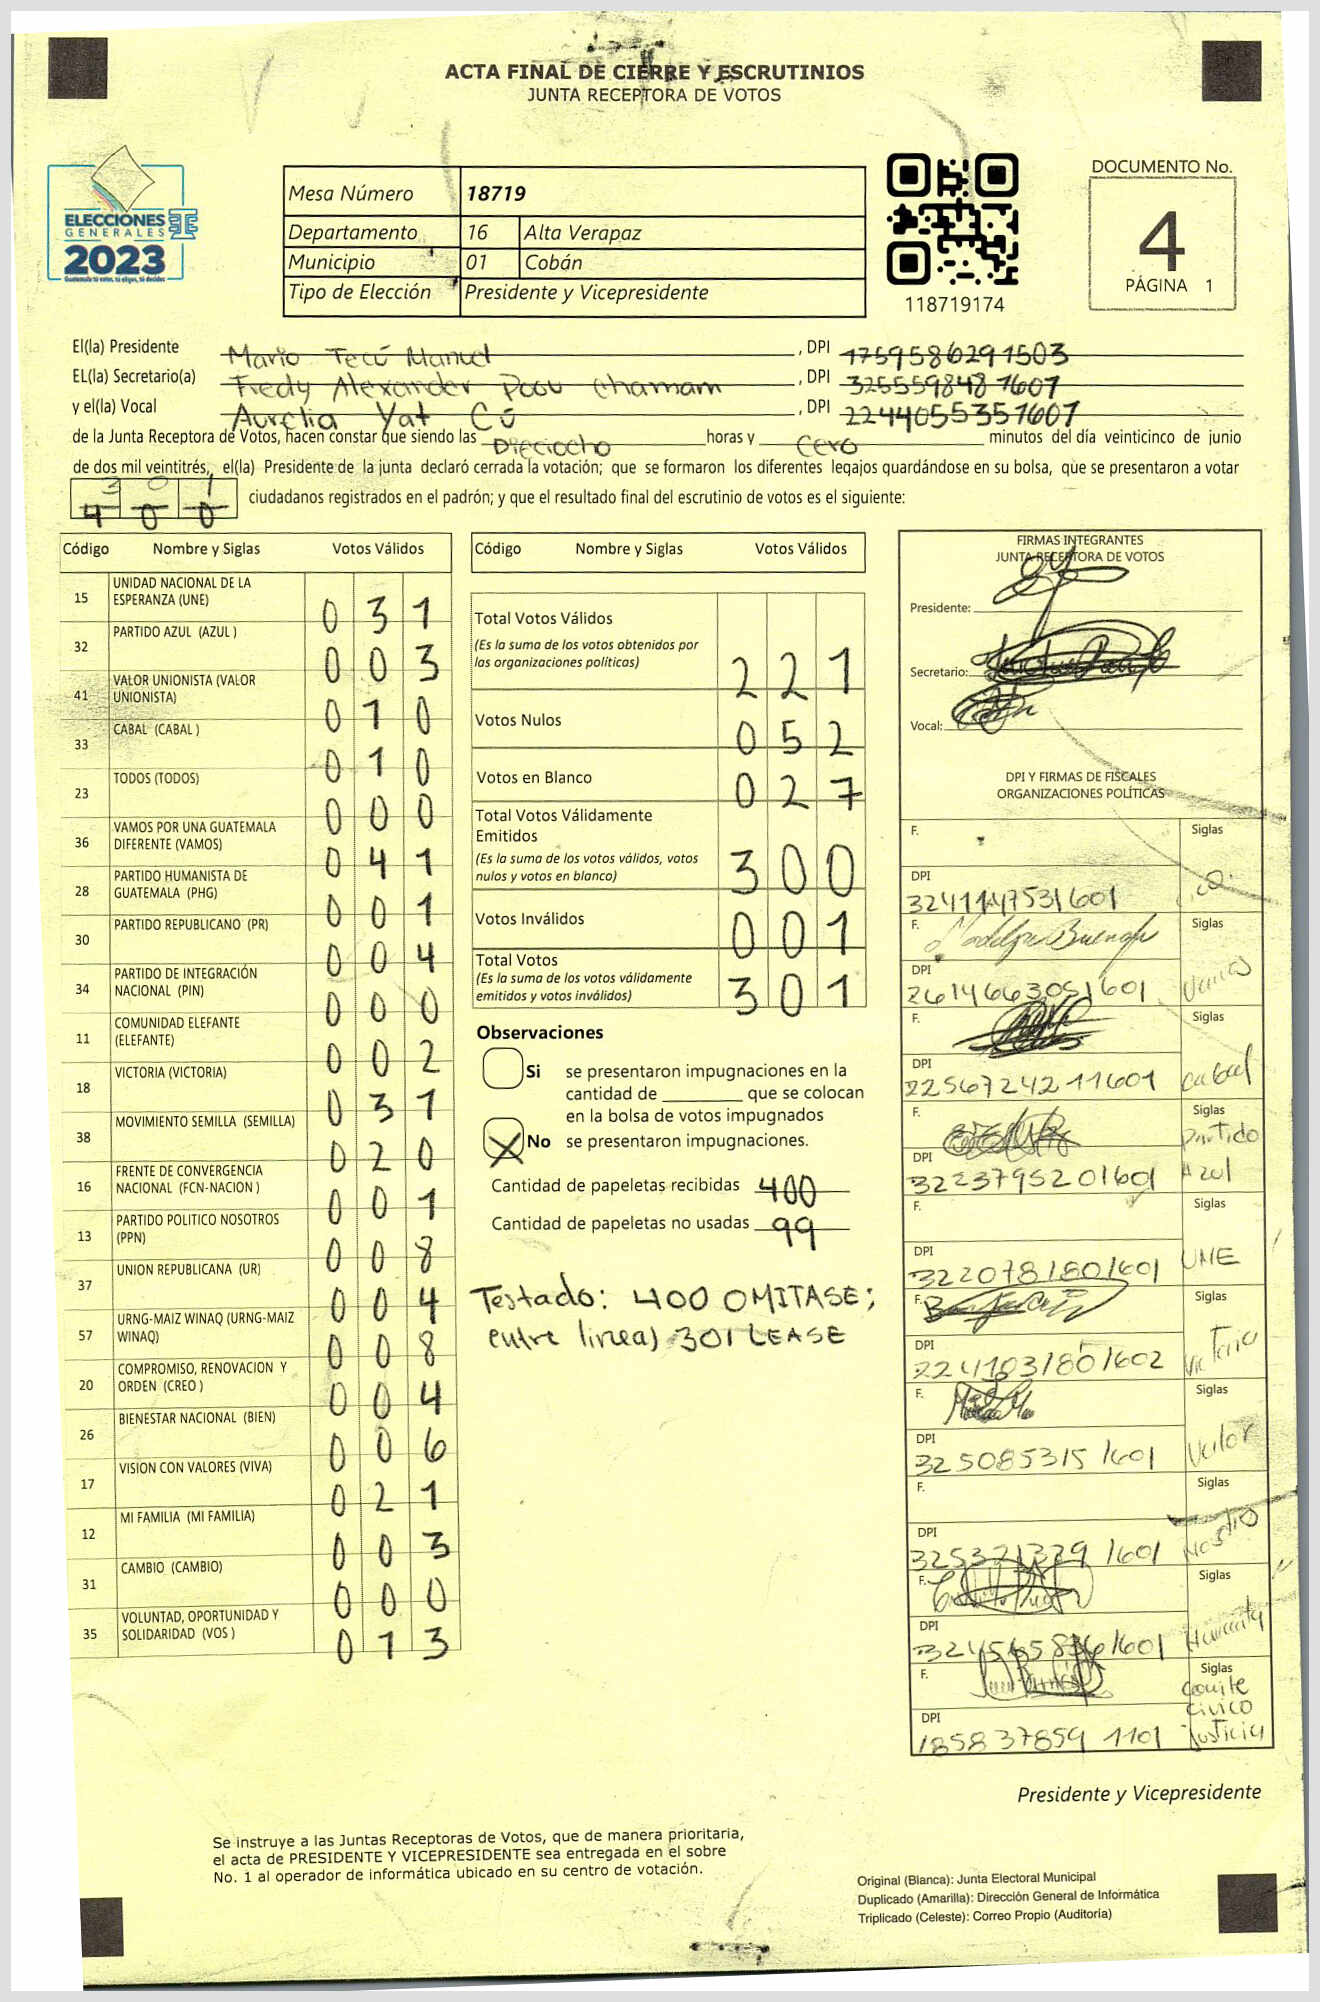 ACTA FINAL DE CIERRE Y ESCRUTINIOS
JUNTA RECEPTORA DE VOTOS
ELECCIONES
GENERALES
2023
Guatemala: tú votas, tú eliges, tú decides
Mesa Número 18719
Departamento 16 Alta Verapaz
Municipio 01 Cobán
Tipo de Elección Presidente y Vicepresidente
118719174
DOCUMENTO No.
4
PÁGINA 1
El(la) Presidente Mario Tecú Manuel , DPI 1759586291503
EL(la) Secretario(a) Fredy Alexander Poou Chamam , DPI 3255598481607
y el(la) Vocal Aurelia Yat Cú , DPI 2244055351607
de la Junta Receptora de Votos, hacen constar que siendo las Dieciocho horas y cero minutos del día veinticinco de junio
de dos mil veintitrés, el(la) Presidente de la junta declaró cerrada la votación; que se formaron los diferentes legajos guardándose en su bolsa, que se presentaron a votar
3 0 1
4 0 0 ciudadanos registrados en el padrón; y que el resultado final del escrutinio de votos es el siguiente:
Código Nombre y Siglas Votos Válidos
15 UNIDAD NACIONAL DE LA ESPERANZA (UNE) 0 3 1
32 PARTIDO AZUL (AZUL ) 0 0 3
41 VALOR UNIONISTA (VALOR UNIONISTA) 0 1 0
33 CABAL (CABAL ) 0 1 0
23 TODOS (TODOS) 0 0 0
36 VAMOS POR UNA GUATEMALA DIFERENTE (VAMOS) 0 4 1
28 PARTIDO HUMANISTA DE GUATEMALA (PHG) 0 0 1
30 PARTIDO REPUBLICANO (PR) 0 0 4
34 PARTIDO DE INTEGRACIÓN NACIONAL (PIN) 0 0 0
11 COMUNIDAD ELEFANTE (ELEFANTE) 0 0 2
18 VICTORIA (VICTORIA) 0 3 1
38 MOVIMIENTO SEMILLA (SEMILLA) 0 2 0
16 FRENTE DE CONVERGENCIA NACIONAL (FCN-NACION ) 0 0 1
13 PARTIDO POLITICO NOSOTROS (PPN) 0 0 8
37 UNION REPUBLICANA (UR) 0 0 4
57 URNG-MAIZ WINAQ (URNG-MAIZ WINAQ) 0 0 8
20 COMPROMISO, RENOVACION Y ORDEN (CREO ) 0 0 4
26 BIENESTAR NACIONAL (BIEN) 0 0 6
17 VISION CON VALORES (VIVA) 0 2 1
12 MI FAMILIA (MI FAMILIA) 0 0 3
31 CAMBIO (CAMBIO) 0 0 0
35 VOLUNTAD, OPORTUNIDAD Y SOLIDARIDAD (VOS ) 0 1 3
Código Nombre y Siglas Votos Válidos
Total Votos Válidos
(Es la suma de los votos obtenidos por
las organizaciones políticas) 2 2 1
Votos Nulos 0 5 2
Votos en Blanco 0 2 7
Total Votos Válidamente
Emitidos
(Es la suma de los votos válidos, votos
nulos y votos en blanco) 3 0 0
Votos Inválidos 0 0 1
Total Votos
(Es la suma de los votos válidamente
emitidos y votos inválidos) 3 0 1
Observaciones
Si se presentaron impugnaciones en la
cantidad de ________ que se colocan
en la bolsa de votos impugnados
X No se presentaron impugnaciones.
Cantidad de papeletas recibidas 400
Cantidad de papeletas no usadas 99
Testado: 400 OMITASE;
entre lineas 301 LEASE
FIRMAS INTEGRANTES
JUNTA RECEPTORA DE VOTOS
Presidente:
Secretario:
Vocal:
DPI Y FIRMAS DE FISCALES
ORGANIZACIONES POLÍTICAS
F. Siglas
DPI
3241147531601
F. Siglas
DPI
2614663051601 Vamos
F. Siglas
DPI
2256724211601 cabal
F. Siglas
Partido
DPI
3223795201601 Azul
F. Siglas
DPI
3220781801601 UNE
F. Siglas
DPI
2241031801602 Victoria
F. Siglas
DPI
3250853151601 Valor
F. Siglas
DPI
3253213291601
F. Siglas
DPI
F. Siglas
comite
civico
DPI
1858378591101 justicia
Presidente y Vicepresidente
Se instruye a las Juntas Receptoras de Votos, que de manera prioritaria,
el acta de PRESIDENTE Y VICEPRESIDENTE sea entregada en el sobre
No. 1 al operador de informática ubicado en su centro de votación.
Original (Blanca): Junta Electoral Municipal
Duplicado (Amarilla): Dirección General de Informática
Triplicado (Celeste): Correo Propio (Auditoría)